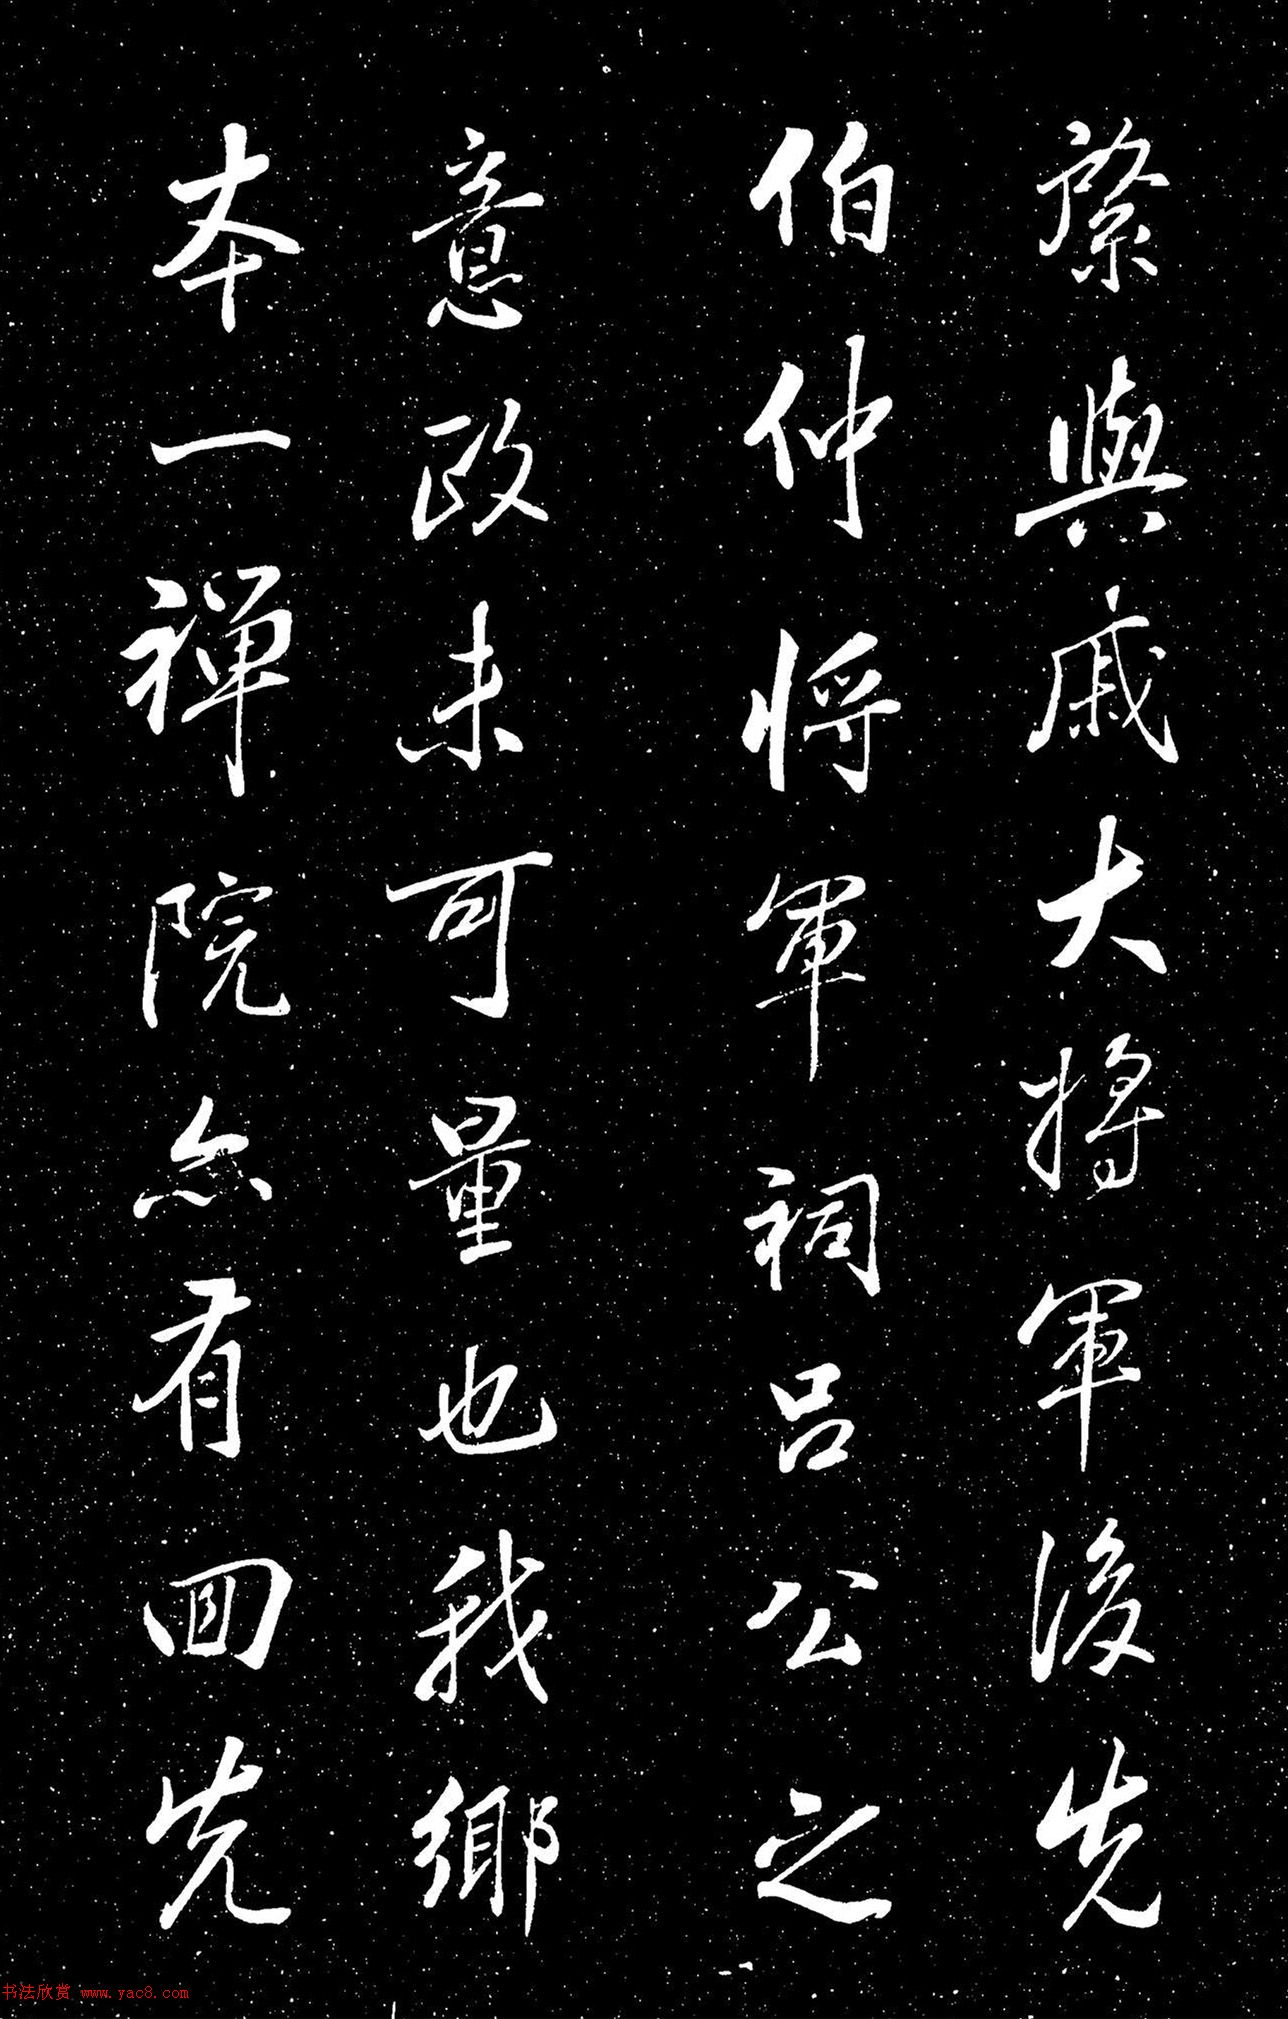 祭與戚大將軍後先
伯仲將軍祠吕公之
意政未可量也我鄉
本一禅院亦有回先
书法欣赏 www.yac8.com